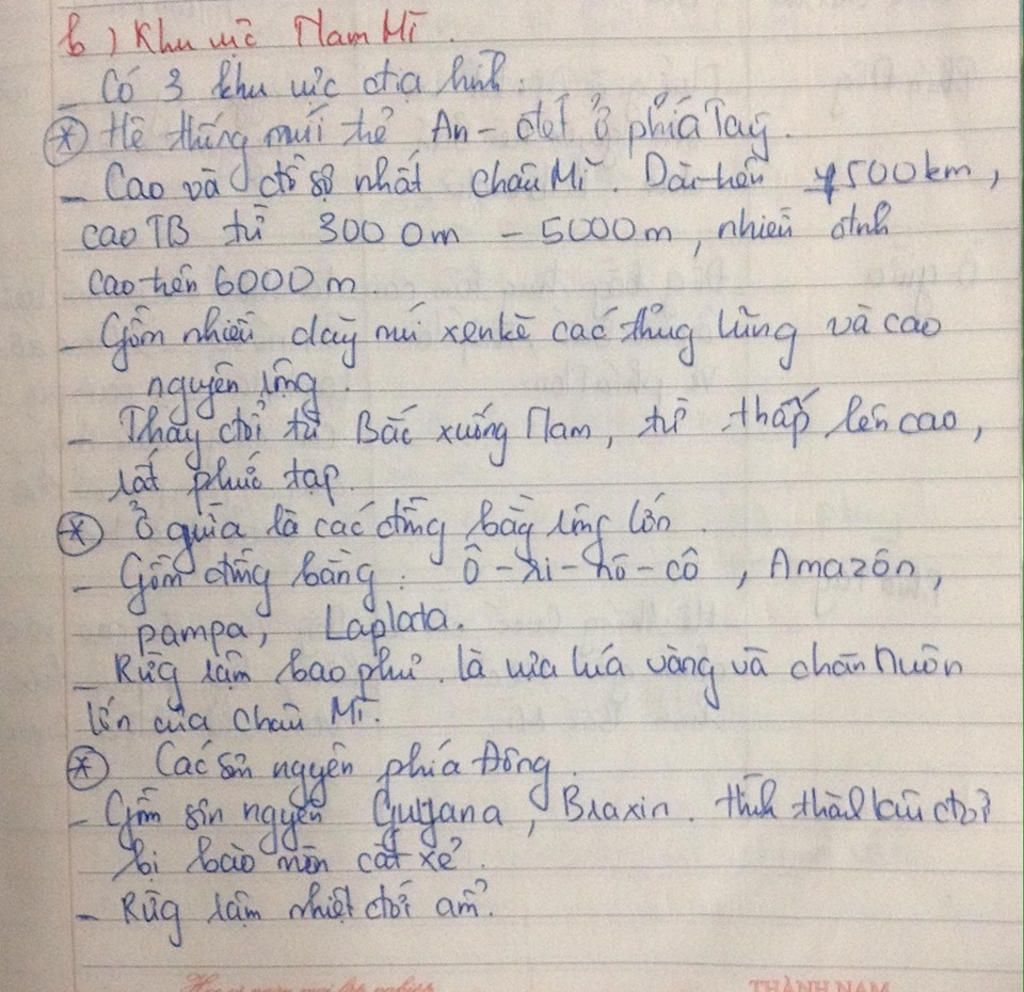 b) Khu vực Nam Mĩ.
- Có 3 khu vực địa hình:
* Hệ thống núi trẻ An-đet ở phía Tây.
- Cao và đồ sộ nhất châu Mĩ. Dài hơn 4500km,
cao TB từ 3000m - 5000m, nhiều đỉnh
cao hơn 6000m
- Gồm nhiều dãy núi xen kẽ các thũg lũng và cao
nguyên rộng.
- Thay đổi từ Bắc xuống Nam, từ thấp lên cao,
rất phức tạp.
* Ở giữa là các đồng bằg rộng lớn.
- Gồm đồng bằng: Ô-ri-nô-cô, Amazôn,
pampa, Laplata.
- Rừg rậm bao phủ. là vựa lúa vàng và chăn nuôn
lớn của châu Mĩ.
* Các sơn ngyên phía Đông.
- Gồm sơn ngyên Guyana, Braxin. hình thành lâu đời
bị bào mòn cắt xẻ.
- Rừg rậm nhiệt đới ẩm.
THÀNH NAM